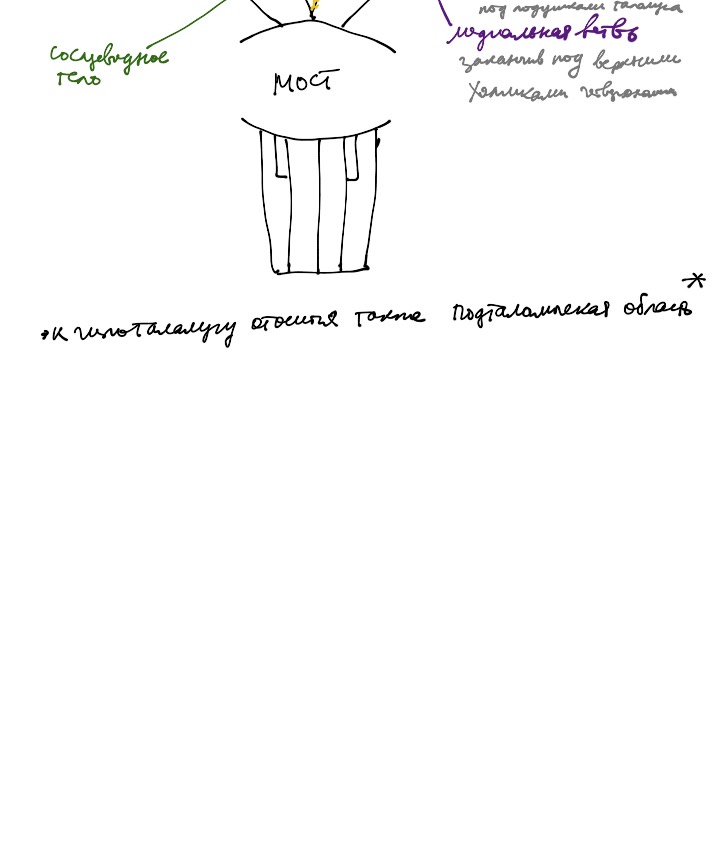 под подушками таламуса
медиальная ветвь
заканчив под верхними
холмиками четверохолмия
сосцевидное
тело
мост
*
•к гипоталамусу относится также подталамическая область